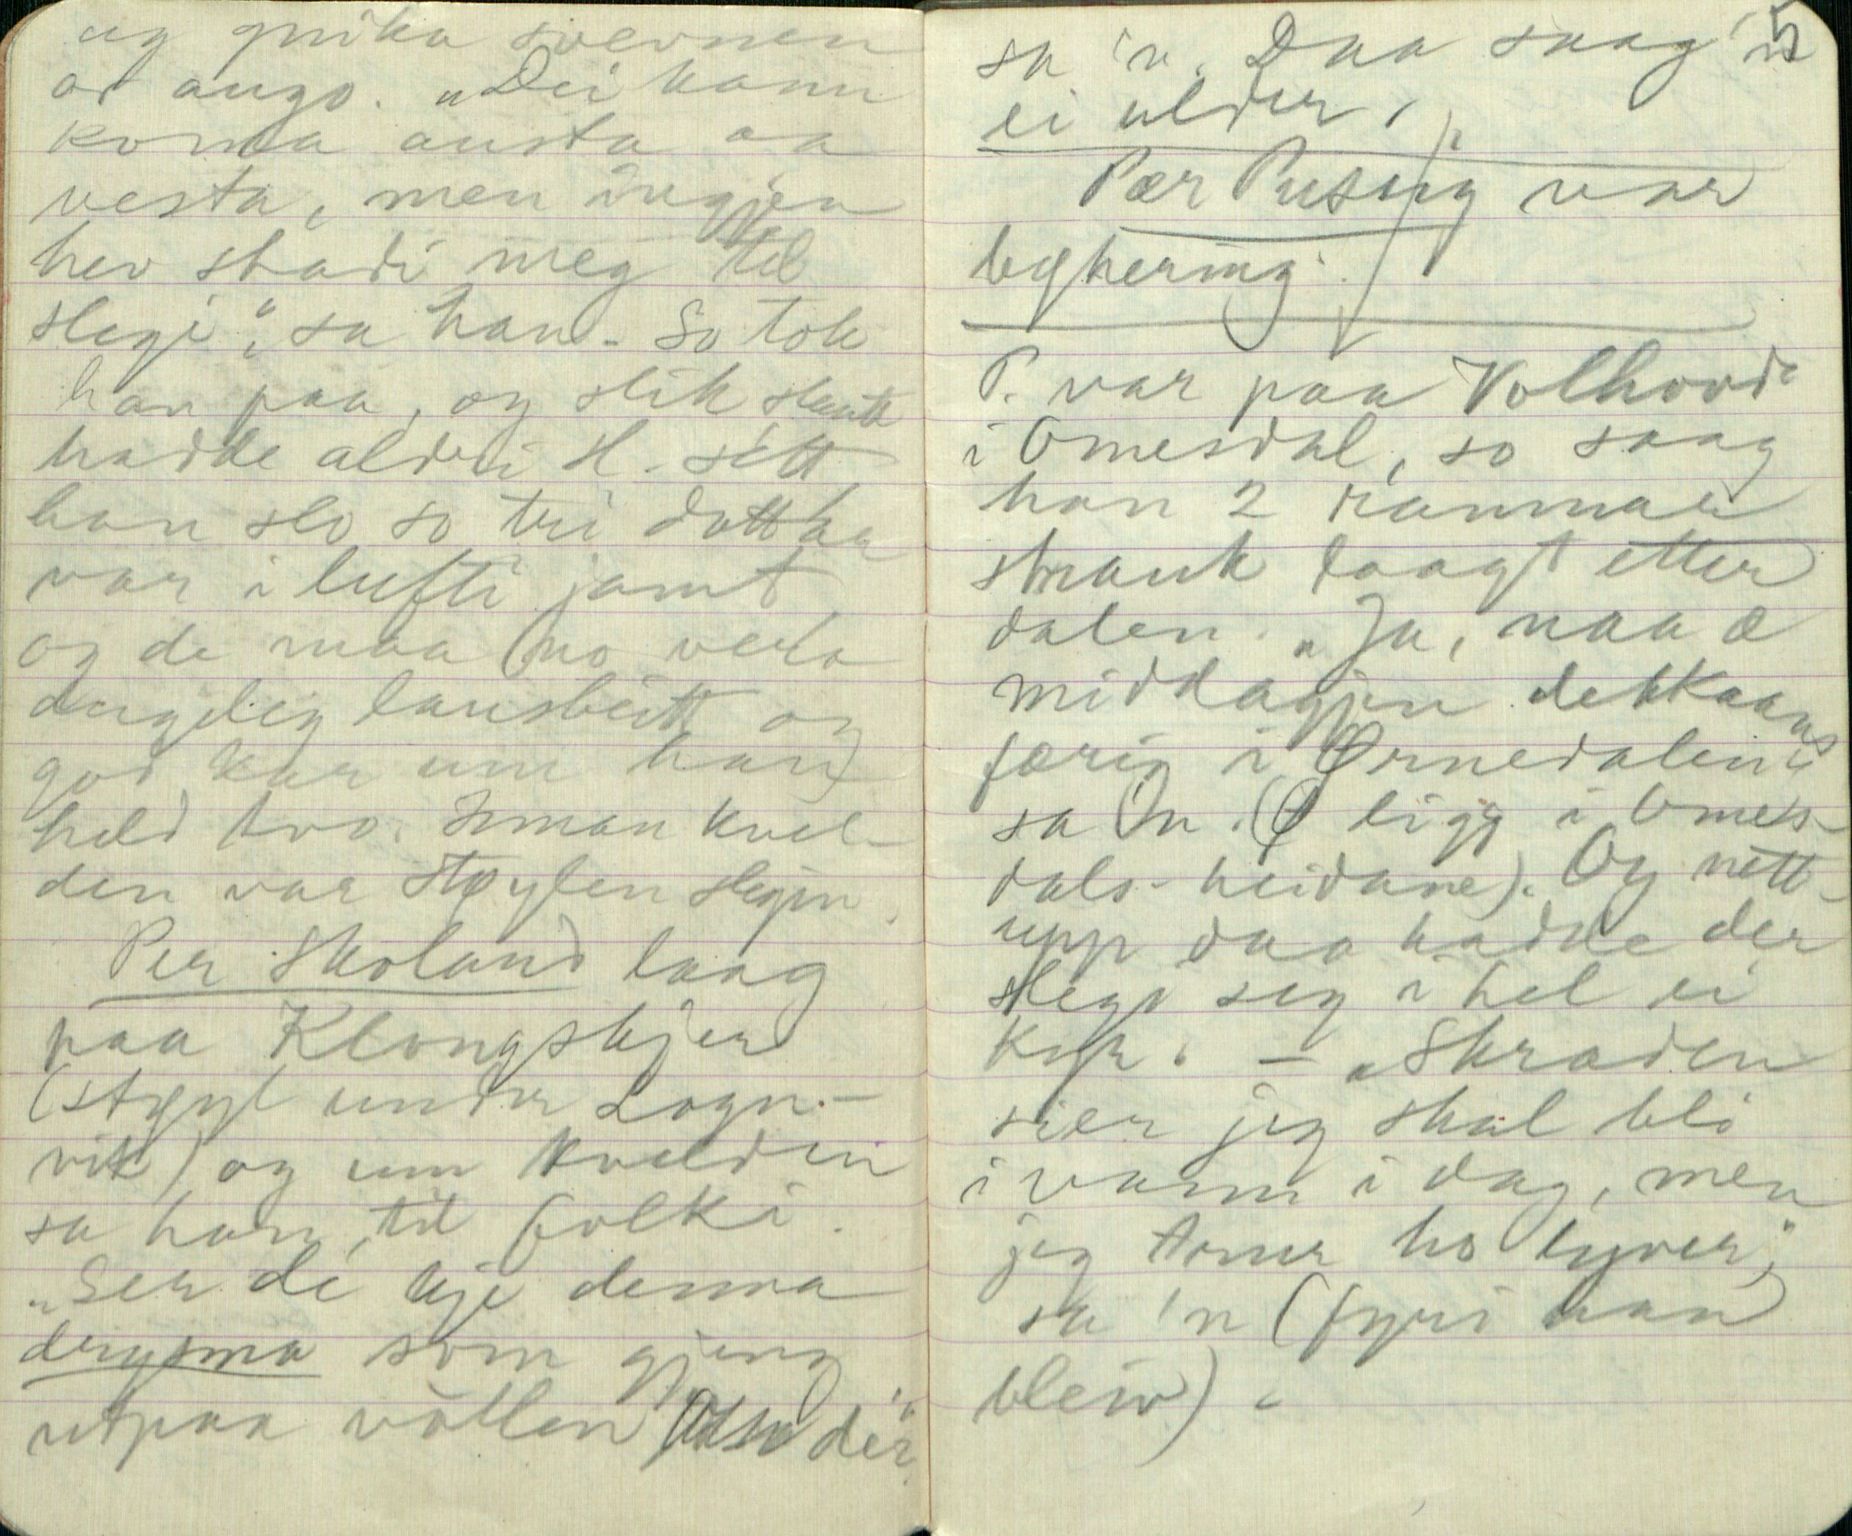 og gnika svevnen
or augo. "Dei kann
koma austa aa
vesta, men ingjen
hev stadi meg til
slegi", sa han. So tok
han paa, og slik slaatt
hadde aldri H. sétt
han slo so tri dottaa
var i lufti jamt
og de maa no vera
dugeleg lausbeitt og
god kar um han
held tvo. Innan kvel-
den var Støylen slegjin.
Per Skoland laag
paa Klongskjer
(støyl under Logn-
vik) og um kvelden
sa han til folki.
"Ser de kje denna
drysma som gjeng
utpaa vollen der"
5
sa 'n. Daa saag 'n
ei ulder.
Pær Pusnig var
bykæring.
P. var paa Volhovd
i Omesdal, so saag
han 2 ramnar
strauk laagt etter
dalen. "Ja, naa æ
middagjen dekkaans
færig i Ørnedalen"
sa 'n. (Ø ligg i Omes-
dals-heidane). Og nett-
upp daa hadde der
slegi seg i hel ei
kyr. – "Skraden
sier jeg skal bli
i vann i dag, men
jeg trour ho lyver",
sa 'n (fyri han
bleiv).